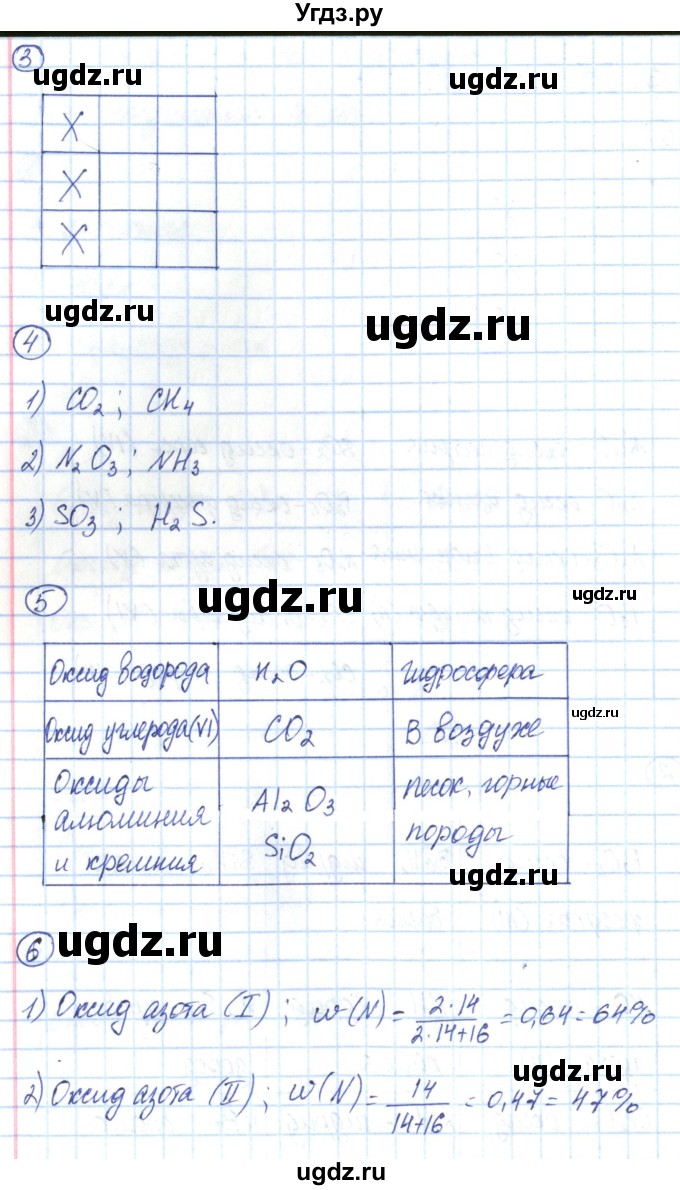 Угдз.ру
3
ugdz.ru ugdz.ru
X
X
X
ugdz.ru ugdz.ru
4
1) CO2 ; CH4
2) N2O3 ; NH3
3) SO3 ; H2S.
5 ugdz.ru ugdz.ru
Оксид водорода H2O гидросфера
ugdz.ru
Оксид углерода(VI) CO2 В воздухе
Оксиды алюминия и кремния Al2O3 SiO2 песок, горные породы
ugdz.ru
6 ugdz.ru
1) Оксид азота (I) ; w(N) = 2·14 / 2·14+16 = 0,64 = 64%
ugdz.ru
2) Оксид азота (II) ; w(N) = 14 / 14+16 = 0,47 = 47%
ugdz.ru